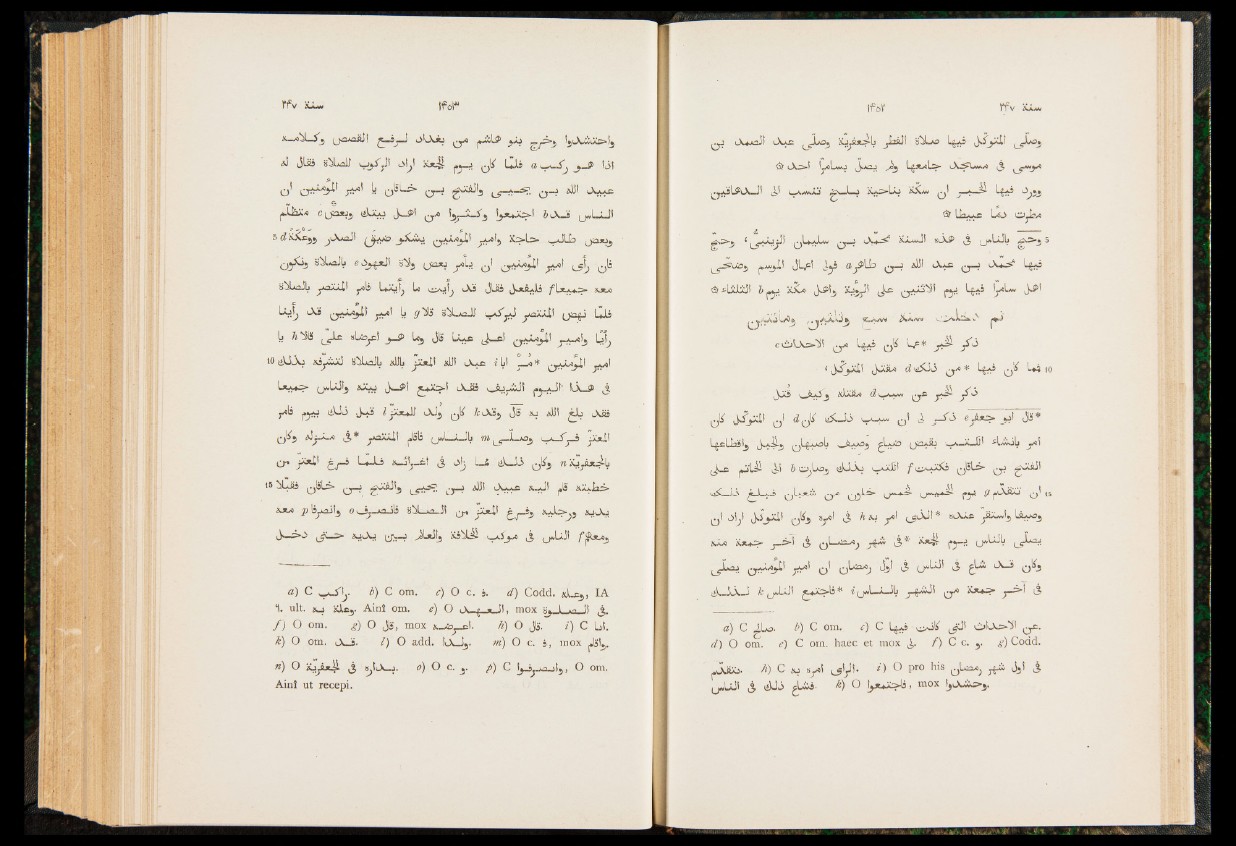 سنة ٢۴٧ ١۴٥٢
وصلّى المتوكّل فيها صلاة الفطر بالجعفريّة وصلّى عبد الصمد بن
موسى فى مسجد جامعها ولم يصلّ بسامرّا احد ۞
وورد فيها الخبر ان سكّة بناحية بلخ تنسب الى الدهاقين
مطرت دما عبيطا ۞
5 وحجّ بالناس فى هذه السنة محمّد بن سليمان الزينبىّ، وحجّ
فيها محمّد بن عبد الله بن طاهر a فولى اعمال الموسم وضحّى
اهل سامرّا فيها يوم الاثنين على الرؤية واهل مكّة يوم b الثلثاء ۞
ثم دخلت سنة سبع واربعين ومائتين
ذكر الخبر *عمّا كان فيها من الاحداث c
10 فمما كان فيها *من ذلك d مقتل المتوكّل ،
ذكر الخبر عن سبب d مقتله وكيف قُتل
*قال ابو جعفر e ذكر لى ان سبب ذلك كان d ان المتوكّل كان
امر بانشاء الكتب بقبض ضياع وصيف باصبهان والجبل واقطاعها
الفتح بن خاقان فكتبت f الكتب بذلك وصارت b الى الخاتم على
15 ان تتقدّم g يوم الخميس لخمس خلون من شعبان فبلغ ذلك
وصيفا واستقرّ عنده *الذى امر به h فى امره وكان المتوكّل اراد ان
يصلّى بالناس يوم الجمعة *فى شهر رمضان فى آخر جمعة منه
وكان قد شاع فى الناس فى اوّل رمضان ان امير المؤمنين يصلّى
فى آخر جمعة من الشهر بالناس i *فاجتمع الناس k لذلك
a) C صالح. b) C om. c) C عن الاحداث التى كانت فيها.
d) O om. e) C om. haec et mox لى. f) C c. و. g) Codd.
تتقدم. h) C الراى امره به. i) O pro his فى اول شهر رمضان
فشاع ذلك فى الناس. k) O فاجتمعوا, mox وحشدوا.
سنة ٢۴٧ ١۴٥٣
واحتشدوا وخرج بنو هاشم من بغداد لرفع القصص وكلامه
اذا هو ركب a فلمّا كان يوم الجمعة اراد الركوب للصلاة فقال له
عبيد الله بن يحيى والفتح بن خاقان يا امير المؤمنين ان
الناس قد b اجتمعوا وكثروا من اهل بيتك وبعض c متظلّم
5 وبعض طالب حاجة وامير المؤمنين يشكو ضيق الصدر ووَعْكَة d
فان رأى امير المؤمنين ان يأمر بعض ولاة العهود e بالصلاة ونكون
معه جميعا f فليفعل فقال قد رأيت ما رأيتما فامر المنتصر بالصلاة
فلمّا نهض المنتصر ليركب للصلاة قالا g يا امير المؤمنين قد رأينا
رأيا وامير المؤمنين اعلى عينا قال وما هو اعرضاه علىّ قالا h يا
10 امير المؤمنين *مُرْ ابا i عبد الله المعتزّ بالله بالصلاة لتشرّفه بذلك
فى هذا اليوم الشريف فقد اجتمع اهل بيته والناس جميعا
فقد بلغ الله به قال وقد k كان وُلد للمعتزّ l قبل ذلك بيوم فامر
المعتزّ فركب وصلّى m بالناس فاقام المنتصر *فى منزله وكان
بالجعفريّة n وكان ذلك مما زاد فى اغرائه فلما فرغ المعتزّ من
15 خطبته قام اليه عبيد الله بن يحيى والفتح بن خاقان فقبّلا
يديه ورجليه وفرغ المعتزّ من الصلاة فانصرف o وانصرفا p معه
ومعهم r الناس فى موكب الخلافة والعالم بين يديه حتى دخل
a) C راكب. b) C om. c) O c. ف. d) Codd. وعلة, IA
٩. ult. وعكة به. Ainî om. e) O العهد, mox فى الصلوة.
f) O om. g) O قال, mox اعرضه. h) O قال. i) C ابنا.
k) O om. قد. l) O add. ولدا. m) O c. ف, mox واقام.
n) O بداره فى الجعفريّة. o) O c. و. p) C وانصرفوا, O om.
Ainî ut recepi.